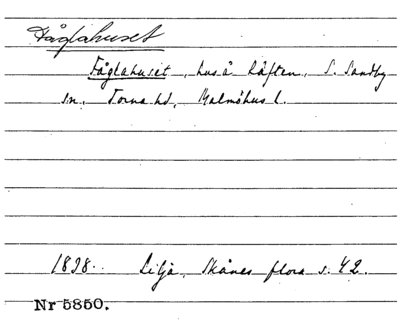 Fåglahuset
Fåglahuset, hus å Råften, S. Sandby
sn, Torna hd, Malmöhus l.
1838. Lilja, Skånes flora s. 42.
Nr 5850.